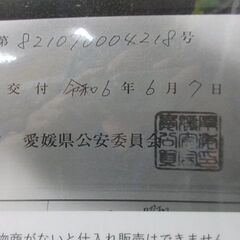 第821090004218号
交付 令和6年6月7日
愛媛県公安委員会
物商がないと仕入れ販売はできません